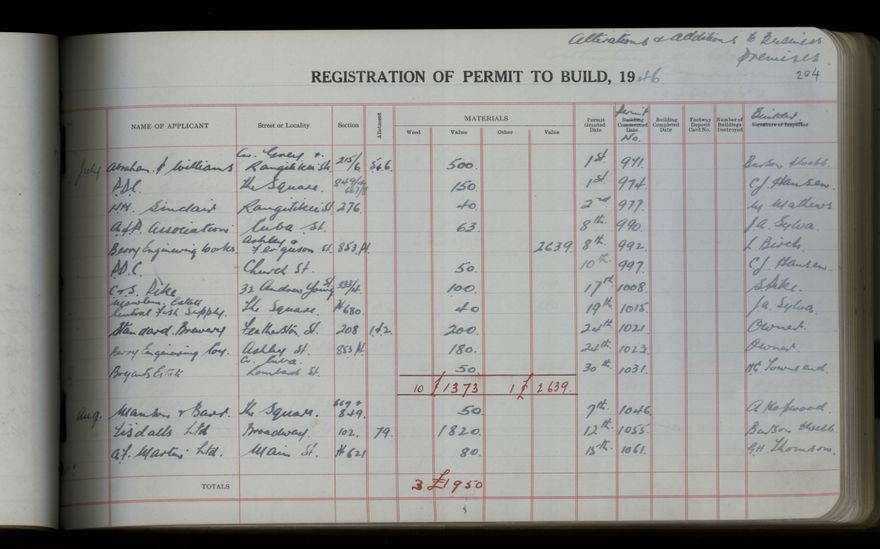 Alterations & Additions to Business
Premises
204
REGISTRATION OF PERMIT TO BUILD, 1946
NAME OF APPLICANT Street or Locality Section Allotment MATERIALS Permit Granted Date Permit Building Commenced Date No. Building Completed Date Footway Deposit Card No. Number of Buildings Destroyed Builder Signature of Inspector
Wood Value Other Value
July Abraham & Williams Cr. Grey & Rangitikei St. 215/6 566 500. 1st. 971.
P.D.C. The Square. 150. 1st. 974. C.J. Hansen.
H.H. Sinclair Rangitikei St 276. 40 2nd 977. M Mathews
A & P. Association Cuba St. 63. 8th. 990. J.A. Sylva.
Berry Engineering Works Ashley & Ferguson St. 853/Pt. 2639. 8th. 992. L Birch.
P.D.C. Church St. 50. 10th. 997. C.J. Hansen.
C & S. Pike 32 Andrew Young St 100. 17th 1008. S Pike.
Mowlem Estate
Central Fish Supply. The Square. Pt 680. 40 19th 1015. J.a. Sylva.
Standard Brewery Featherston St. 208 1&2. 200. 24th 1021. Owner.
Berry Engineering Coy. Ashley St. 853 Pt. 180. 24th 1023. Owner.
Bryants Estate Cr. Cuba Lombard St. 50. 30th 1031. Townsend.
10 £1373 1 £2639.
Aug. The Square. 669 & 849. 50. 7th. 1046. A Hopwood.
Tisdalls Ltd Broadway. 102. 79. 1820. 12th. 1055.
A.J. Martin Ltd. Main St. Pt 621 80. 15th. 1061. G.H. Thomson.
TOTALS 3 £1950